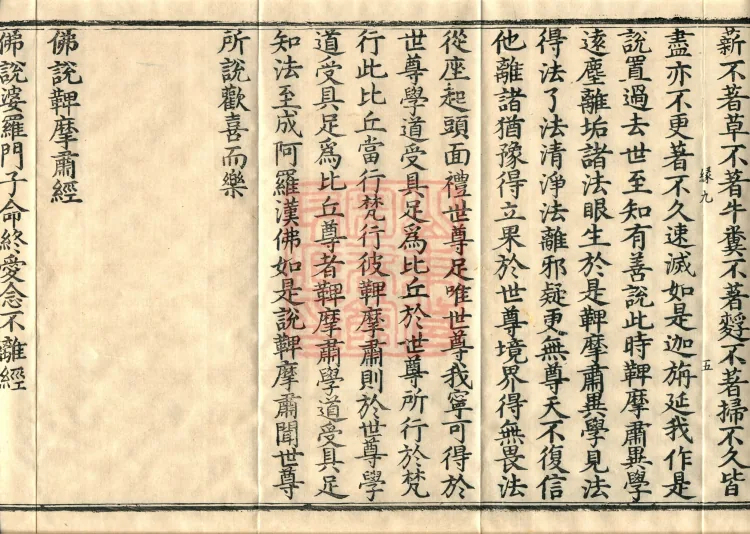 薪不著草不著牛糞不著䴬不著掃不久皆
緣九
五
盡亦不更著不久速滅如是迦旃延我作是
說置過去世至知有善說此時鞞摩肅異學
遠塵離垢諸法眼生於是鞞摩肅異學見法
得法了法清淨法離邪疑更無尊天不復信
他離諸猶豫得立果於世尊境界得無畏法
從座起頭面禮世尊足唯世尊我寧可得於
世尊學道受具足為比丘於世尊所行於梵
行此比丘當行梵行彼鞞摩肅則於世尊學
道受具足為比丘尊者鞞摩肅學道受具足
知法至成阿羅漢佛如是說鞞摩肅聞世尊
所說歡喜而樂
佛說鞞摩肅經
佛說婆羅門子命終愛念不離經